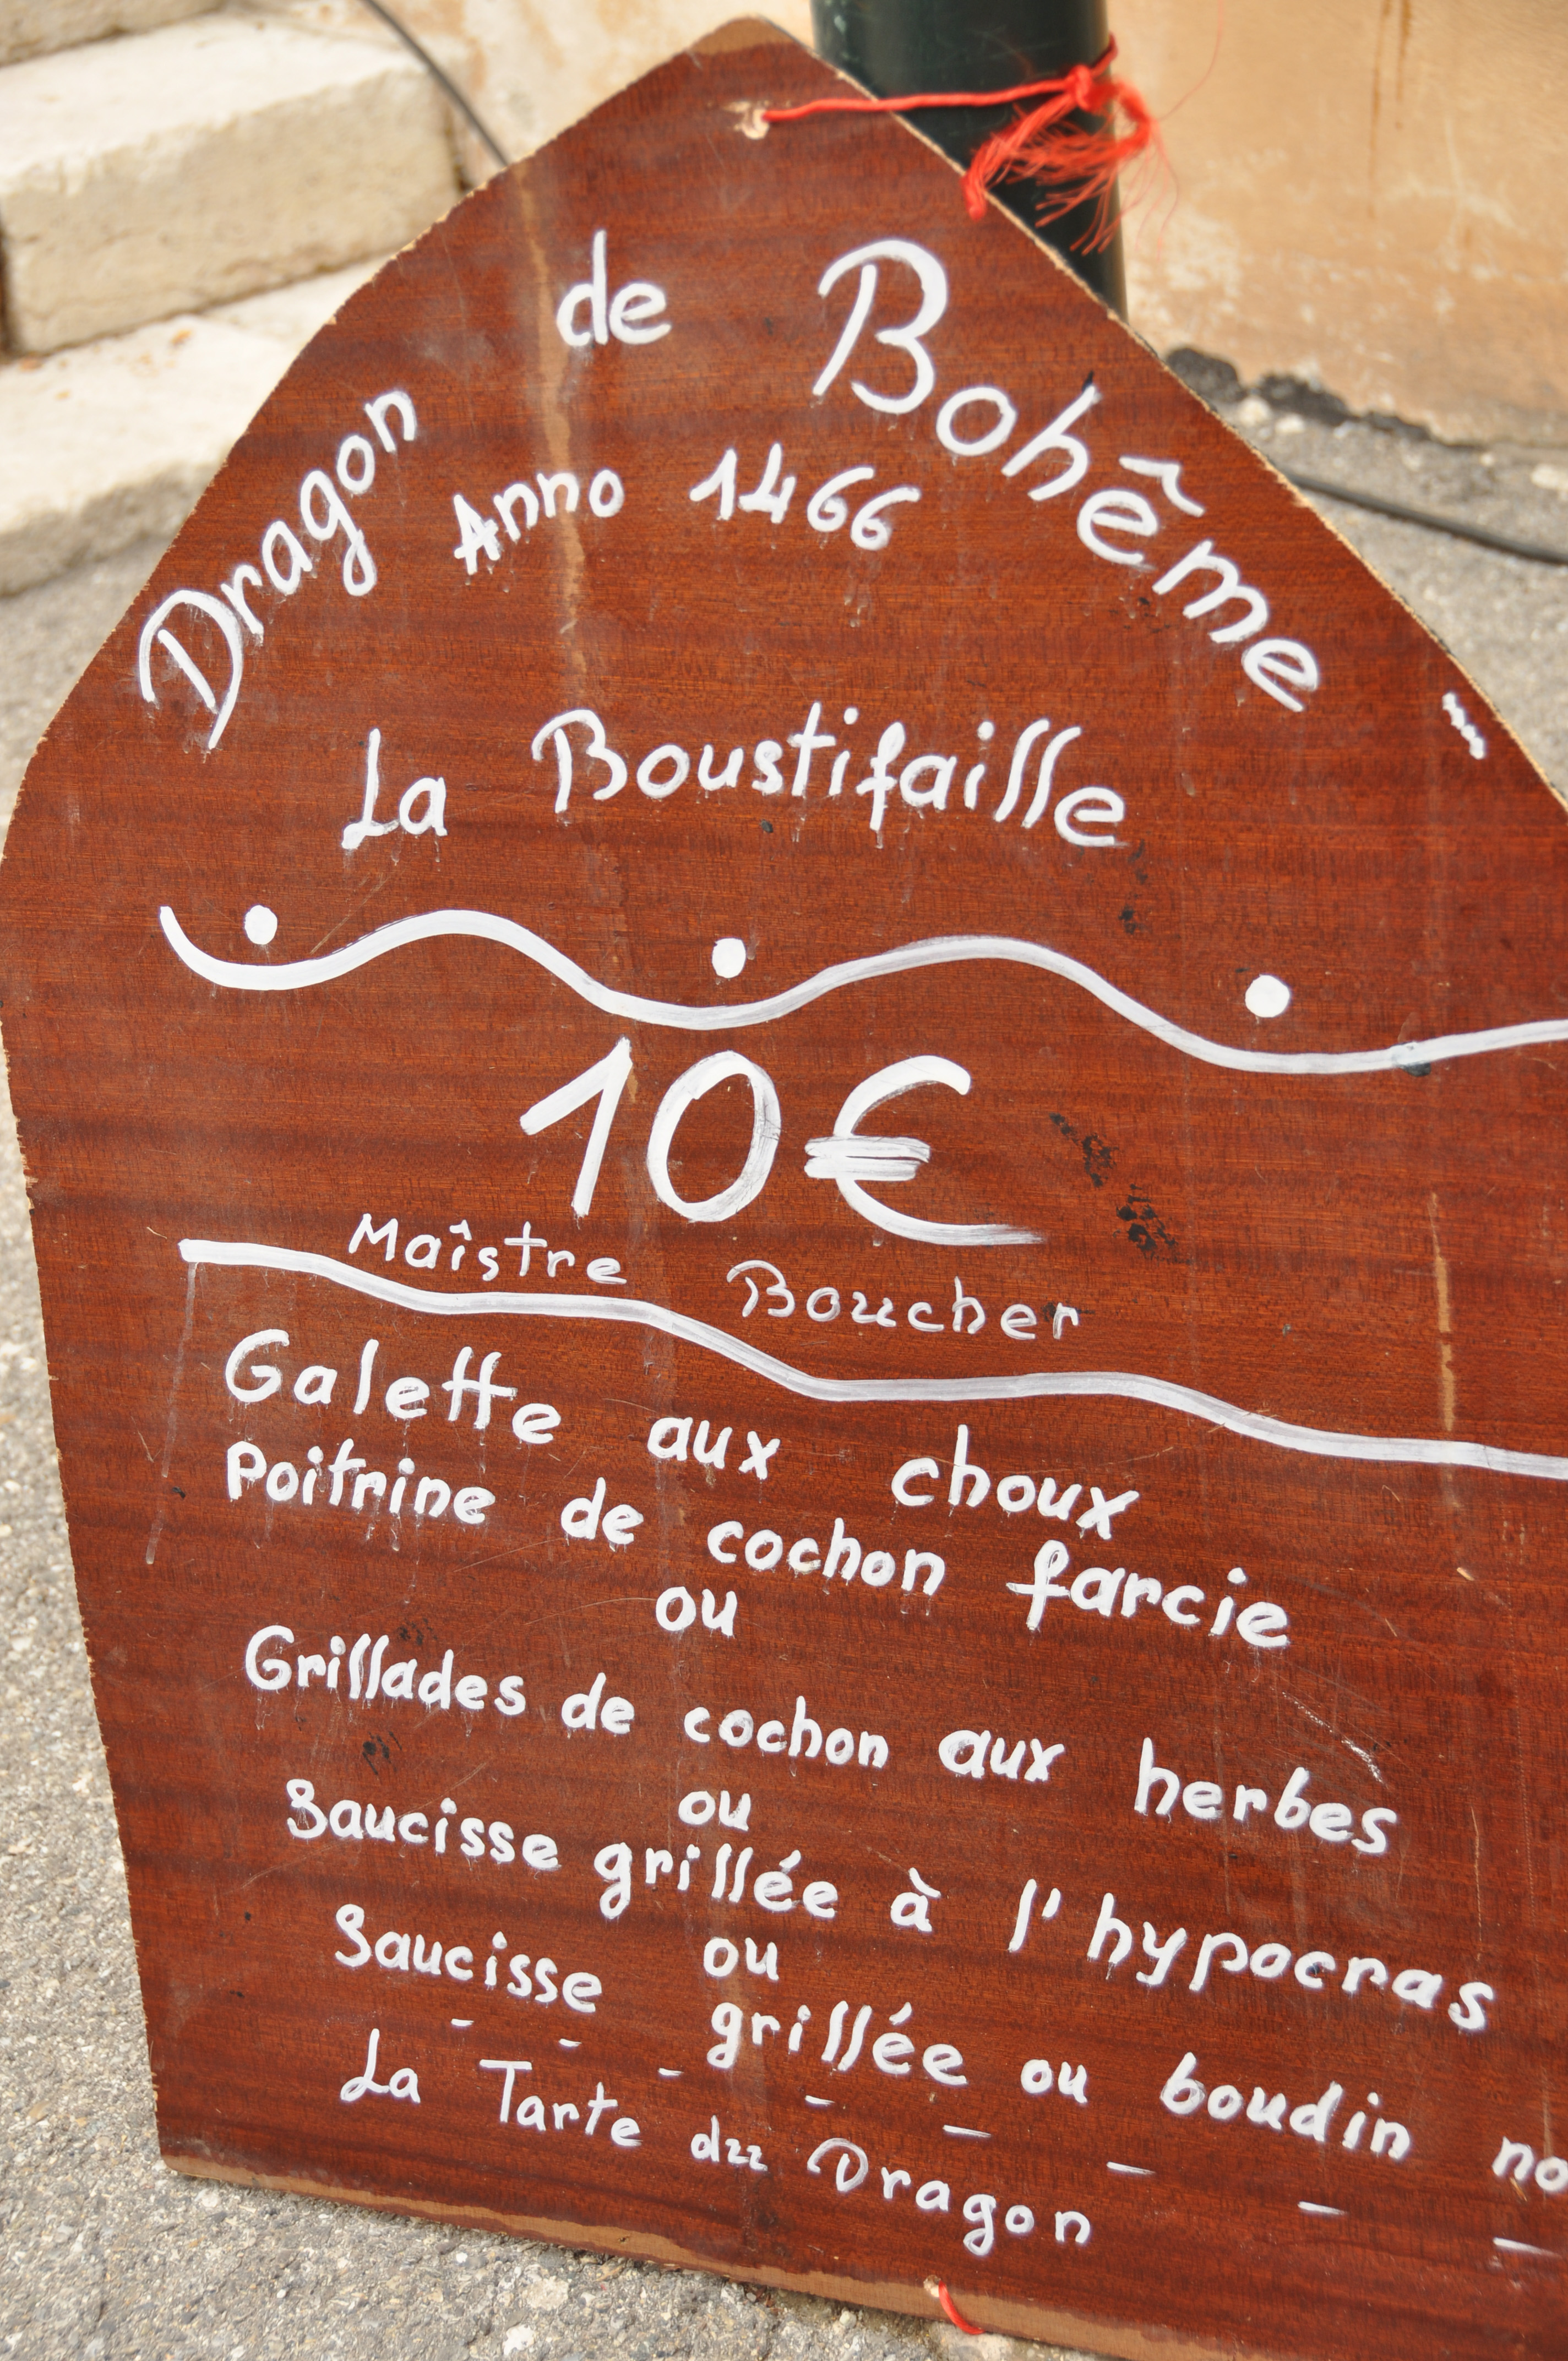 Dragon de Bohême
Anno 1466
La Boustifaille
10€
Maîstre Boucher
Galette aux choux
Poitrine de cochon farcie
ou
Grillades de cochon aux herbes
ou
Saucisse grillée à l'hypocras
ou
Saucisse grillée ou boudin no
La Tarte du Dragon